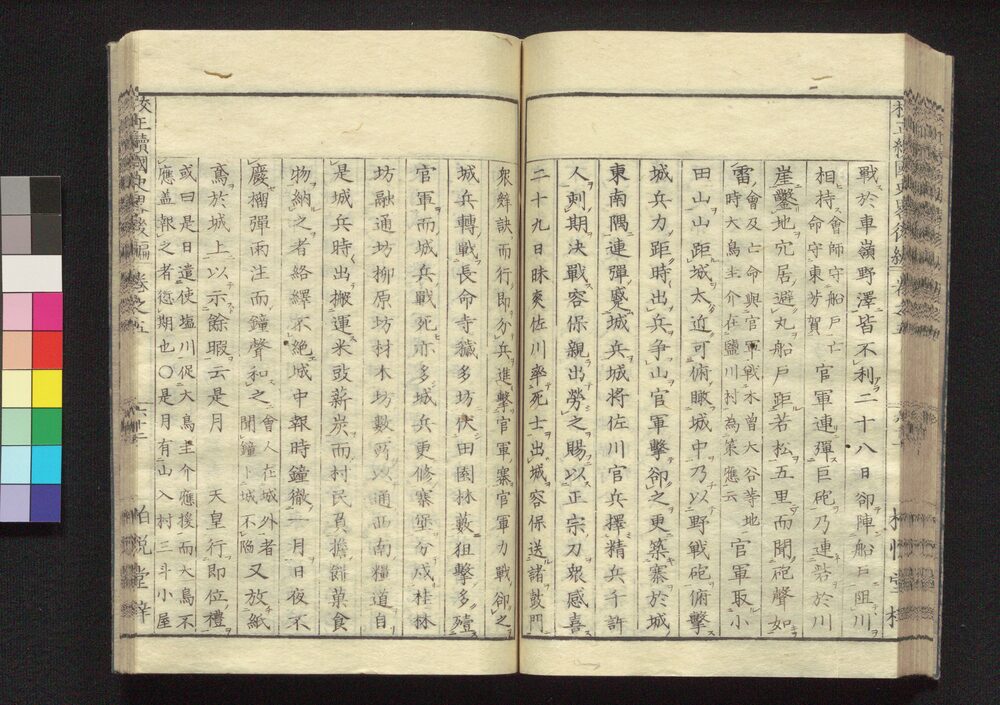 戰於車嶺野澤皆不利二十八日卻陣船戸阻川
相持會師守船戸亡命守東芳賀官軍連彈巨砲乃連砦於川
崖鑿地宂居避丸船戸距若松五里而聞砲聲如
雷會及亡命與官軍戰木曾大谷等地時大鳥圭介在鹽川村為策應云官軍取小
田山山距城太近可俯瞰城中乃以野戰砲俯擊
城兵力距時出兵爭山官軍擊卻之更築寨於城
東南隅連彈蹙城兵城將佐川官兵擇精兵千許
人刺期決戰容保親出勞之賜以正宗刀衆感喜
二十九日昧爽佐川率死士出城容保送諸鼓門
衆辭訣而行即分兵進擊官軍寨官軍力戰卻之
城兵轉戰長命寺穢多坊伏田圃林藪狙擊多殪
官軍而城兵戰死亦多城兵更修寨堡分戍桂林
坊融通坊柳原坊材木坊數所以通西南糧道自
是城兵時出搬運米豉薪炭而村民負擔餅菓食
物納之者絡繹不絶城中報時鐘徹一月日夜不
廢榴彈雨注而鐘聲和之會人在城外者聞鐘卜城不陷又放紙
鳶於城上以示餘暇云是月天皇行即位禮
或曰是日遣使塩川促大鳥圭介應援而大鳥不
應盖報之者愆期也〇是月有山入村三斗小屋
校正續國史略後編 卷之五 六十二 柏悅堂梓